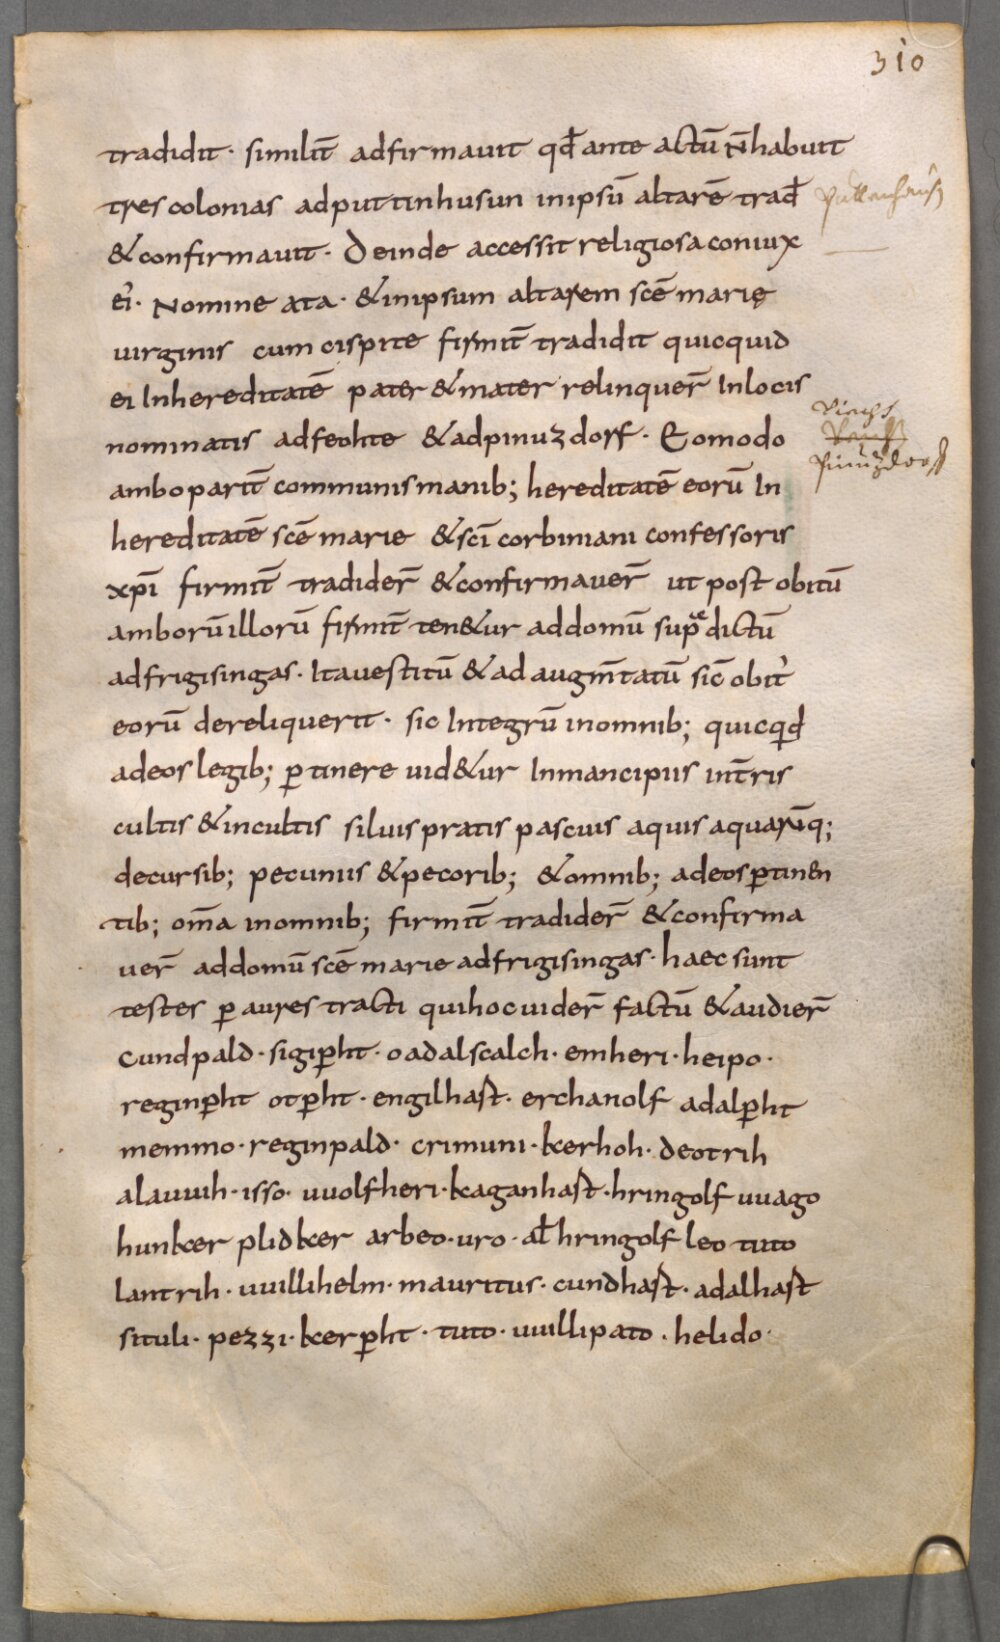 310
tradidit · similit̄ adfirmauit qđ ante actū N̄ habuit
tres colonias ad puttinhusun in ipsū altarē trađ
& confirmauit · Deinde accessit religiosa coniux
ei᾽ · Nomine ata · & in ipsum altarem scē marię
uirginis cum cispite firmit̄ tradidit quicquid
ei In hereditatē pater & mater relinquer̄ In locis
nominatis ad feohte & ad pinuzdorf · Eomodo
ambo parit̄ communis manib; hereditatē eorū In
hereditatē scē marie & sc̄i corbiniani confessoris
xp̄i firmit̄ tradider̄ & confirmauer̄ ut post obitū
amborū illorū firmit̄ ten&ur ad domū sup͛dictū
ad frigisingas · Ita uestitū & ad augm̄tatū sic̄ obit᾽
eorū dereliquerit · sic Integrū in omnib; quicqđ
ad eos legib; ꝑtinere uid&ur In mancipiis in t̄ris
cultis & incultis siluis pratis pascuis aquis aquarūq;
decursib; pecuniis & pecorib; & omnib; ad eos ꝑtinen
tib; om̄a in omnib; firmit̄ tradider̄ & confirma
uer̄ ad domū scē marie ad frigisingas · haec sunt
testes ꝑ aures tracti qui hoc uider̄ factū & audier̄
Cundpald · sigiꝑht · oadalscalch · emheri · heipo ·
reginꝑht otꝑht · engilhast · erchanolf adalꝑht
memmo · reginpald · crimuni · kerhoh · deotrih
alauuih · isso · uuolfheri · kaganhast · hringolf uuago
hunker plidker arbeo · uro · aƚ hringolf leo tuto
lantrih · uuillihelm · mauritus · cundhast · adalhast
situli · pezzi · kerꝑht · tuto · uuillipato · helido ·
Pinuzdorf